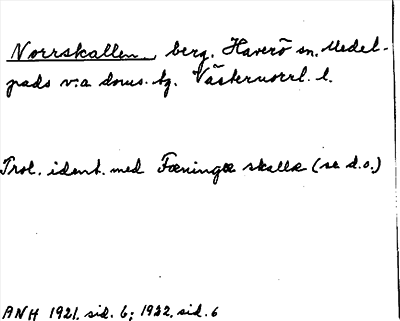 Norrskallen, berg. Haverö sn. Medel-
pads v:a doms. tg. Västernorrl. l.
Trol. ident. med Fæningæ skallæ (se d.o.)
ANH 1921, sid. 6; 1922, sid. 6